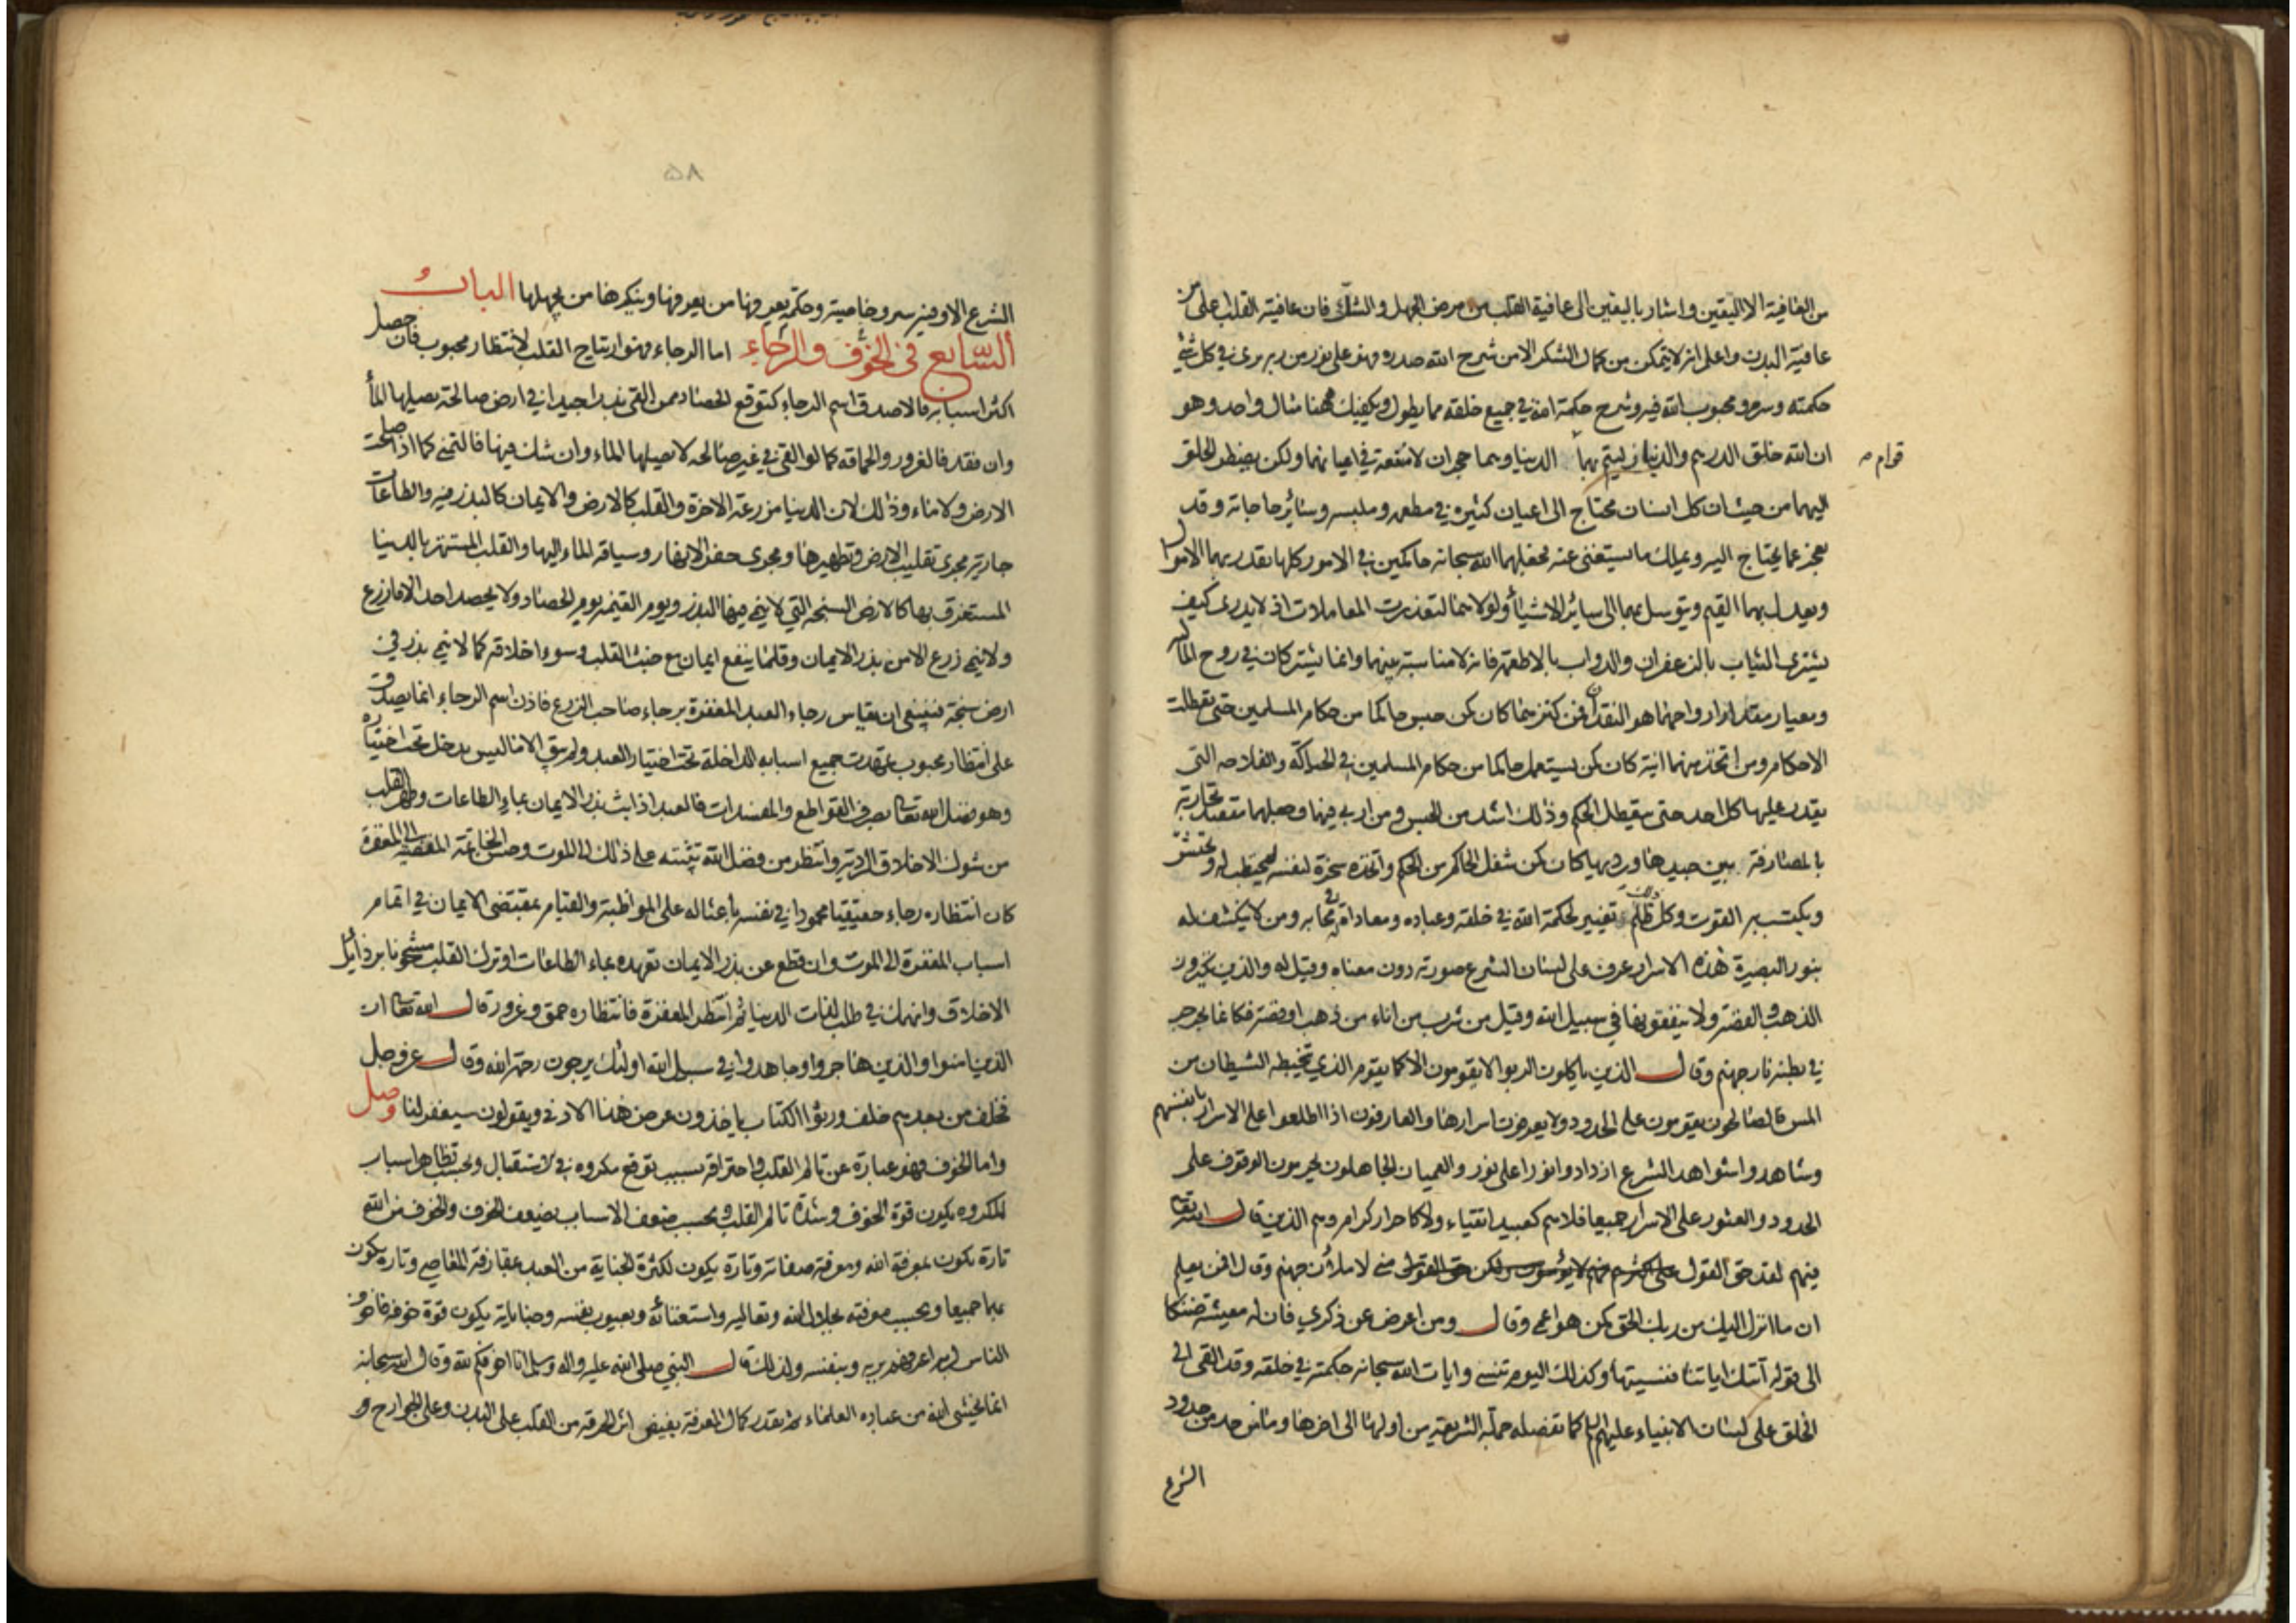 من العافية الا اليقين واشار باليقين الى عافية القلب من مرض الجهل والشك فان عافية القلب اعلى من
عافية البدن واعلم انه لا يتمكن من كمال الشكر الا من شرح الله صدره فهو على نور من ربه يرى في كل شئ
حكمته وسره ومحبوب الله فيه وشرح حكمة الله في جميع خلقه مما يطول ويكفيك ههنا مثال واحد وهو
ان الله خلق الدرهم والدينار ليتم بهما الدنيا وهما حجران لا منفعة في اعيانهما ولكن يضطر الخلق
قوام
اليهما من حيث ان كل انسان محتاج الى اعيان كثيرة في مطعمه وملبسه وسائر حاجاته وقد
يعجز عما يحتاج اليه ويملك ما يستغنى عنه فجعلهما الله سبحانه حاكمين في الامور كلها يقدر بهما الاموال
ويعدل بهما القيم ويتوسل بهما الى سائر الاشياء ولولاهما لتعذرت المعاملات اذ لا يدرى كيف
يشترى الثياب بالزعفران والدواب بالاطعمة فانه لا مناسبة بينهما وانما يشتركان في روح المالية
ومعيار مقدار ارواحهما هو النقدان فمن كنزهما كان كمن حبس حاكما من حكام المسلمين حتى تعطلت
الاحكام ومن اتخذ منهما انية كان كمن يستعمل حاكما من حكام المسلمين في الحياكة والفلاحة التي
يقدر عليها كل احد حتى يتعطل الحكم وذلك اشد من الحبس ومن اربى فيها وجعلهما مقصد تجارته
بالمصارفة بين جيدها ورديها كان كمن شغل الحاكم من الحكم واتخذه سخرة لنفسه ليحتطب له ويحتشّ
ويكتسب به القوت وكل ذلك ظلم وتغيير لحكمة الله في خلقه وعباده ومعاداة له في محابه ومن لا يكشف له
بنور البصيرة هذه الاسرار عرف على لسان الشرع صورته دون معناه وقيل له والذين يكنزون
الذهب والفضة ولا ينفقونها في سبيل الله وقيل من شرب من اناء من ذهب او فضة فكانما يجرجر
في بطنه نار جهنم وقال الذين ياكلون الربوا لا يقومون الا كما يقوم الذي يتخبطه الشيطان من
المس فالصالحون يقومون على الحدود ولا يعرفون اسرارها والعارفون اذا اطلعوا على الاسرار بانفسهم
وشاهدوا شواهد الشرع ازدادوا نورا على نور والعميان الجاهلون يحرمون الوقوف على
الحدود والعثور على الاسرار جميعا فلاهم كعبيد اتقياء ولا كاحرار كرام وهم الذين قال الله تعالى
فيهم لقد حق القول على اكثرهم فهم لا يؤمنون ولكن حق القول مني لاملأن جهنم وقال افمن يعلم
ان ما انزل اليك من ربك الحق كمن هو اعمى وقال ومن اعرض عن ذكري فان له معيشة ضنكا
الى قوله اتتك اياتنا فنسيتها وكذلك اليوم تنسى وايات الله سبحانه حكمته في خلقه وقد القى الى
الخلق على لسان الانبياء عليهم السلام كما تفصله جملة الشريعة من اولها الى اخرها وما من حد من حدود
الشرع
٥٨
الشرع الا وفيه سر وخاصية وحكمة يعرفها من يعرفها وينكرها من يجهلها الباب
السابع في الخوف والرجاء اما الرجاء فهو ارتياح القلب لانتظار محبوب فان حصل
اكثر اسبابه فالاصدق اسم الرجاء كتوقع الحصاد ممن القى بذرا جيدا في ارض صالحة يصيلها الماء
وان فقد فالغرور والحماقة كما لو القى في غير صالحه لا يصيلها الماء وان شك فيها فالتمني كما اذا صلحت
الارض ولا ماء وذلك لان الدنيا مزرعة الاخرة والقلب كالارض والايمان كالبذر فيه والطاعات
جارية مجرى تقليب الارض وتطهيرها ومجرى حفر الانهار وسياقة الماء اليها والقلب المستهتر بالدنيا
المستغرق بها كالارض السبخة التي لا ينمي فيها البذر ويوم القيمة يوم الحصاد ولا يحصد احد الا ما زرع
ولا ينمي زرع الا من بذر الايمان وقلما ينفع ايمان مع خبث القلب وسوء اخلاقه كما لا ينمي بذر في
ارض سبخة فينبغي ان يقاس رجاء العبد المغفرة برجاء صاحب الزرع فاذن اسم الرجاء انما يصدق
على انتظار محبوب تمهدت جميع اسبابه الداخلة تحت اختيار العبد ولم يبق الا ما ليس يدخل تحت اختياره
وهو فضل الله تعالى بصرف القواطع والمفسدات فالعبد اذا بث بذر الايمان بماء الطاعات وطهر القلب
من شوك الاخلاق الردية وانتظر من فضل الله تثبيته على ذلك الى الموت وحسن الخاتمة المفضية الى المغفرة
كان انتظاره رجاء حقيقيا محمودا في نفسه باعثا له على المواظبة والقيام بمقتضى الايمان في اتمام
اسباب المغفرة الى الموت وان قطع عن بذر الايمان تعهده بماء الطاعات او ترك القلب مشحونا برذائل
الاخلاق وانهمك في طلب لذات الدنيا ثم انتظر المغفرة فانتظاره حمق وغرور قال الله تعالى ان
الذين امنوا والذين هاجروا وجاهدوا في سبيل الله اولئك يرجون رحمة الله وقال عز وجل
فخلف من بعدهم خلف ورثوا الكتاب ياخذون عرض هذا الادنى ويقولون سيغفر لنا وصل
واما الخوف فهو عبارة عن تالم القلب واحتراقه بسبب توقع مكروه في الاستقبال وبحسب تظاهر اسباب
المكروه يكون قوة الخوف وشدة تالم القلب وبحسب ضعف الاسباب يضعف الخوف والخوف من الله
تارة يكون بمعرفة الله ومعرفة صفاته وتارة يكون لكثرة الجناية من العبد بمقارفة المعاصي وتارة يكون
بهما جميعا وبحسب معرفته بجلال الله وتعاليه واستغنائه وبعيوب نفسه وجناياته يكون قوة خوفه فاخوف
الناس لربه اعرفهم بربه وبنفسه ولذلك قال النبي صلى الله عليه واله وسلم انا اخوفكم لله وقال الله سبحانه
انما يخشى الله من عباده العلماء ثم بقدر كمال المعرفة يفيض اثر الحرقة من القلب على البدن وعلى الجوارح و